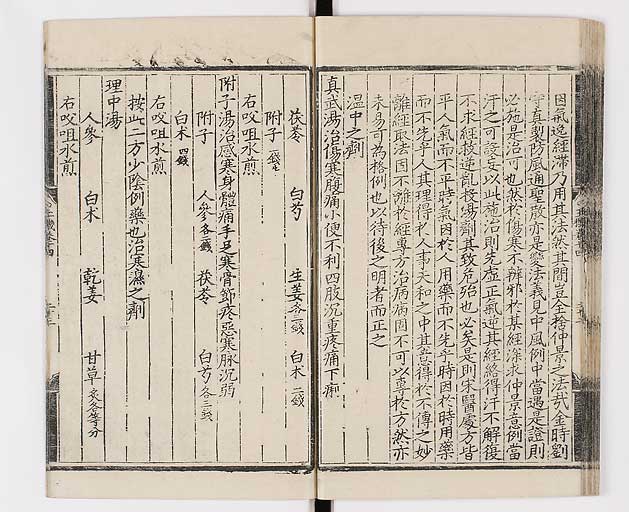 因氣逸經滯乃用其法然其間豈全捨仲景之法哉金時劉
守真製防風通聖散亦是變法義見中風例中當遇是證則
必施是治可也然於傷寒不辨邪於某經深求仲景意例當
汗之可設妄以此施治則先虛正氣逆其經絡得汗不解復
不求經投逆亂投湯劑其致危殆也必矣是則宋醫處方皆
平人氣而不平時氣因於人用藥而不先乎時因於時用藥
而不先乎人其理得於人事天和之中其意得於不傳之妙
離經取法固不離於經專方治病病固不可以專於方然亦
未易可為格例也以待後之明者而正之
溫中之劑
真武湯治傷寒腹痛小便不利四肢沉重疼痛下痢
茯苓 白芍 生姜各三錢 白朮二錢
附子一錢七
右㕮咀水煎
附子湯治感寒身體痛手足寒骨節疼惡寒脉沉弱
附子 人參各二錢 茯苓 白芍各三錢
白朮四錢
右㕮咀水煎
按此二方少陰例藥也治寒濕之劑
理中湯
人參 白朮 乾姜 甘草炙各等分
右㕮咀水煎